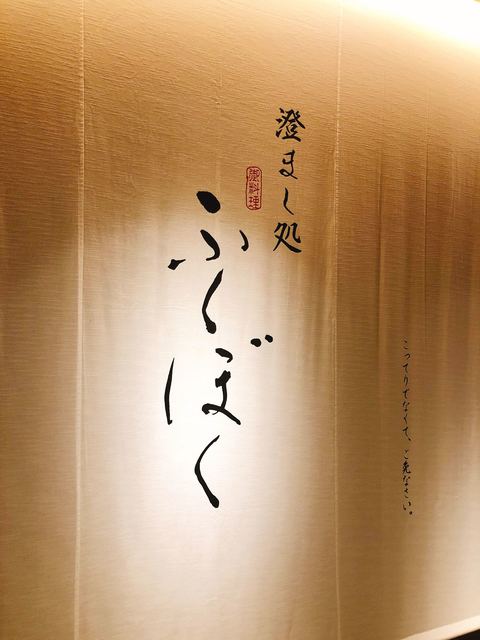 こってりでなくて、ご免なさい。
澄まし処
御料理
ふくぼく